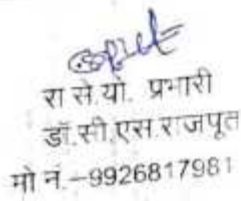 रा.से.यो. प्रभारी
डॉ.सी.एस.राजपूत
मो नं.–9926817981